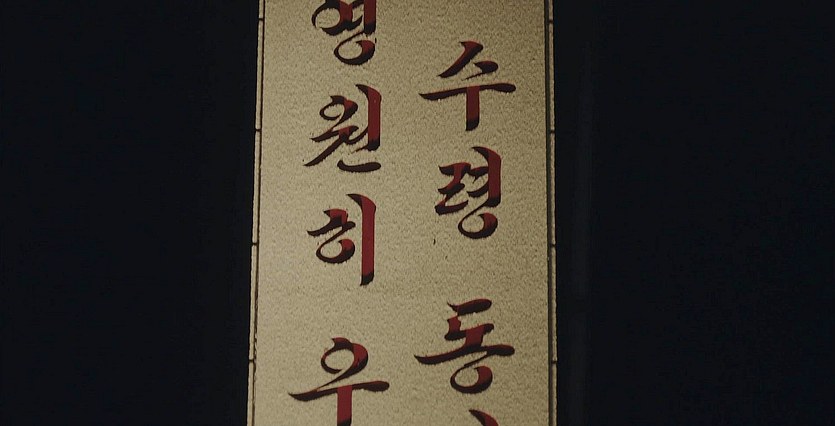 수령 동
영원히 우